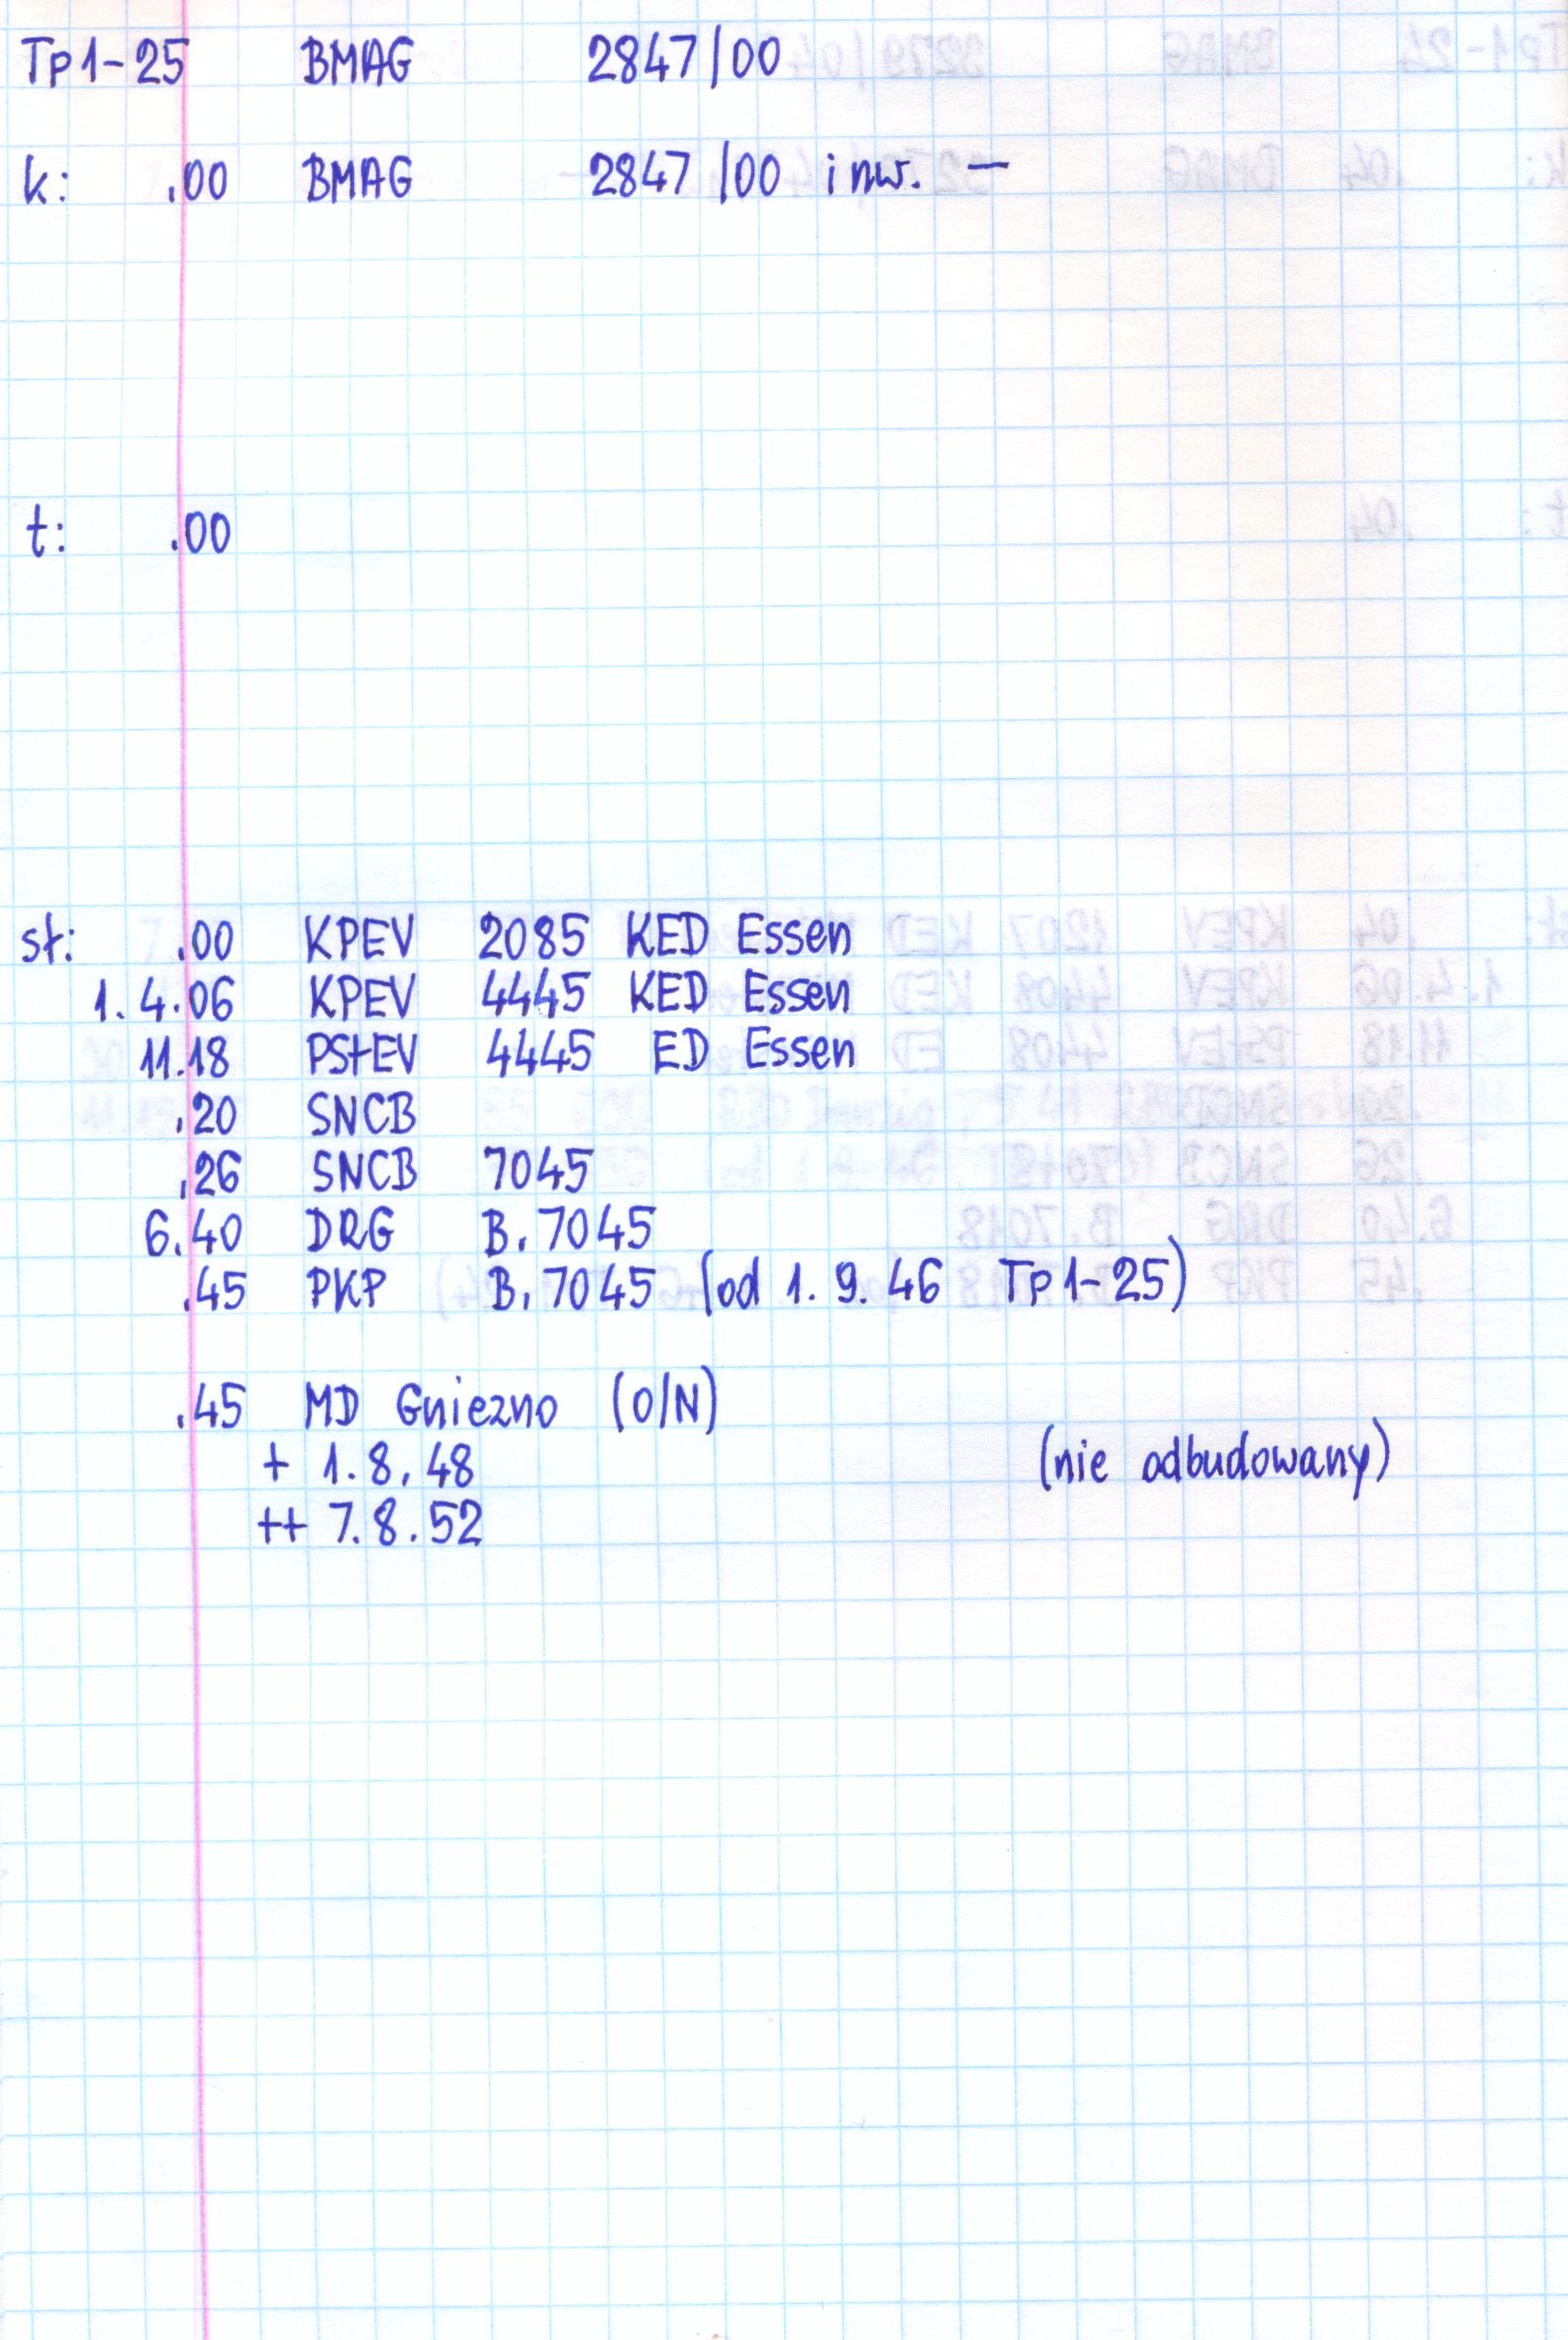 Tp1-25 BMAG 2847/00
k: .00 BMAG 2847/00 inw. —
t: .00
st: .00 KPEV 2085 KED Essen
1.4.06 KPEV 4445 KED Essen
11.18 PStEV 4445 ED Essen
.20 SNCB
.26 SNCB 7045
6.40 DRG B.7045
.45 PKP B.7045 (od 1.9.46 Tp1-25)
.45 MD Gniezno (O/N)
+ 1.8.48 (nie odbudowany)
++ 7.8.52